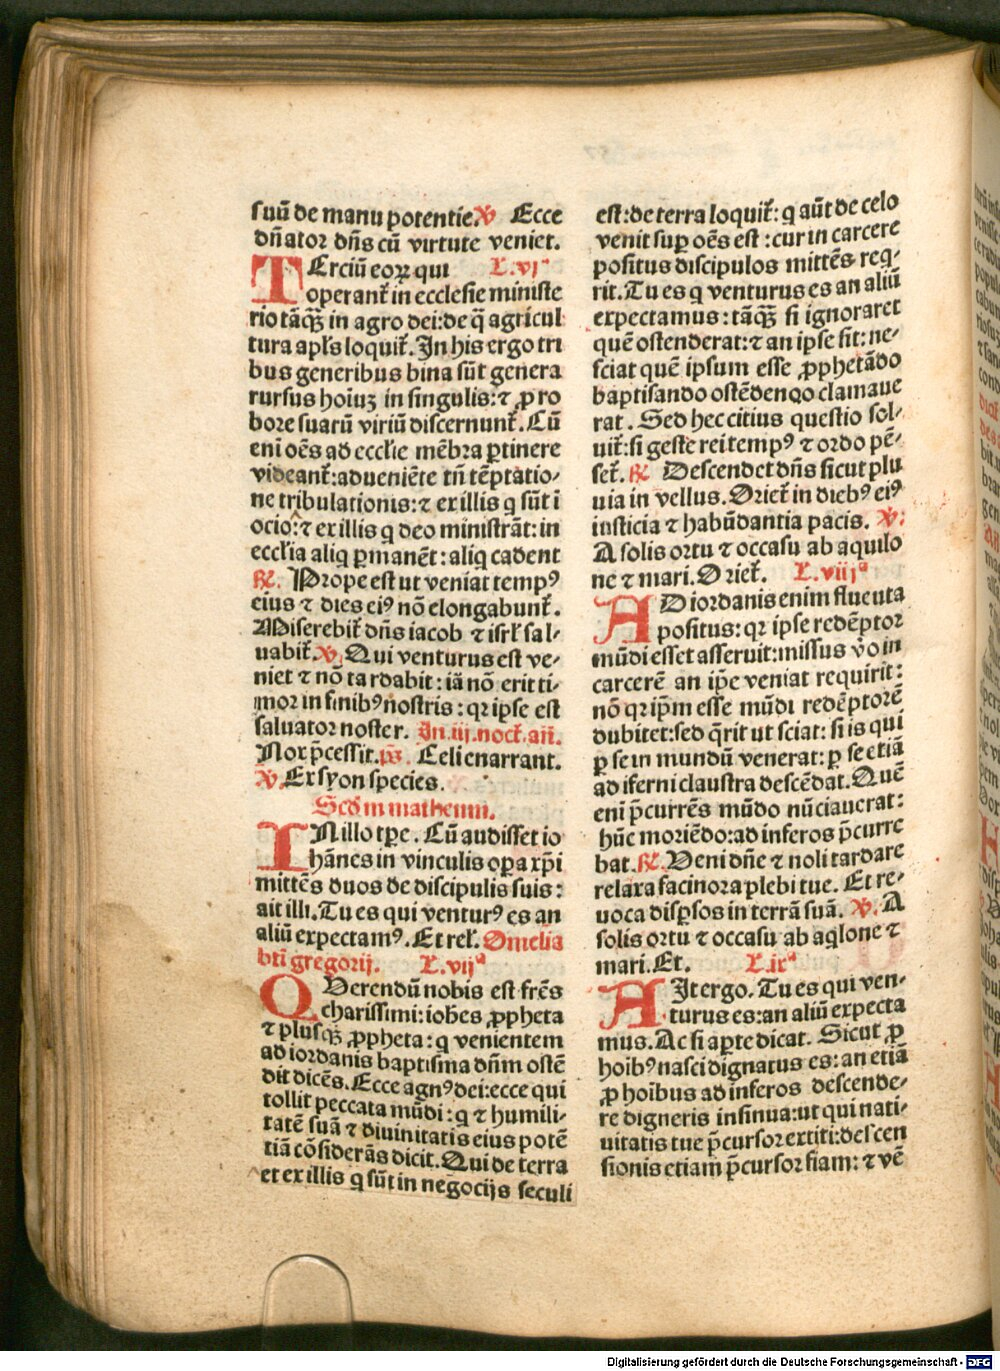 suū de manu potentie. ℣ Ecce
dn̄ator dn̄s cū virtute veniet.
TErciū eoꝝ qui L. vjᵃ
operant᷑ in ecclesie ministe
rio tāqꝫ in agro dei: de q̄ agricul
tura apl̄s loquit᷑. In his ergo tri
bus generibus bina sūt genera
rursus hoīuꝫ in singulis: ⁊ ꝓ ro
bore suarū viriū discernunt᷑. Cū
eni oēs ad eccl̄ie mēbra ꝑtinere
videant᷑: adueniēte tn̄ tēptatio⸗
ne tribulationis: ⁊ ex illis q̄ sūt ī
ocio: ⁊ ex illis q̄ deo ministrāt: in
eccl̄ia aliq̄ ꝑmanēt: aliq̄ cadent
℟. Prope est ut veniat tempꝰ
eius ⁊ dies eiꝰ nō elongabunt᷑.
Miserebit᷑ dn̄s iacob ⁊ isrl̄ sal⸗
uabit᷑. ℣. Qui venturus est ve⸗
niet ⁊ nō tardabit: iā nō erit ti⸗
mor in finibꝰ nostris: qꝛ ipse est
saluator noster. In .iij. noct᷑. añ.
Nox p̄cessit. ps̄. Celi enarrant.
℣. Ex syon species.
Scd̄m matheum.
IN illo tꝑe. Cū audisset io
hānes in vinculis oꝑa xp̄i
mittēs duos de discipulis suis:
ait illi. Tu es qui venturꝰ es an
aliū expectamꝰ. Et rel̄. Omelia
bt̄i gregorij. L. vijᵃ
QVerendū nobis est fr̄es
charissimi: ioh̄es ꝓpheta
⁊ plusqꝫ ꝓpheta: q̄ venientem
ad iordanis baptisma dn̄m ostē
dit dicēs. Ecce agnꝰ dei: ecce qui
tollit peccata mūdi: q̄ ⁊ humili⸗
tatē suā ⁊ diuinitatis eius potē
tiā cōsiderās dicit. Qui de terra
et ex illis q̄ sūt in negocijs seculi
est: de terra loquit᷑: q̄ aūt de celo
venit suꝑ oēs est: cur in carcere
positus discipulos mittēs req⸗
rit. Tu es q̄ venturus es an aliū
expectamus: tāqꝫ si ignoraret
quē ostenderat: ⁊ an ipse sit: ne⸗
sciat quē ipsum esse ꝓphetādo
baptisando ostēdendo clamaue
rat. Sed hec citius questio sol⸗
uit᷑: si geste rei tempꝰ ⁊ ordo pē⸗
set᷑. ℟ Descendet dn̄s sicut plu
uia in vellus. Oriet᷑ in diebꝰ eiꝰ
iusticia ⁊ habūdantia pacis. ℣:
A solis ortu ⁊ occasu ab aquilo
ne ⁊ mari. Oriet᷑. L. viijᵃ
AD iordanis enim fluenta
positus: qꝛ ipse redēptor
mūdi esset asseruit: missus v̊o in
carcerē an ip̄e veniat requirit:
nō qꝛ ip̄m esse mūdi redēptorē
dubitet: sed q̄rit ut sciat: si is qui
ꝑ se in mundū venerat: ꝑ se etiā
ad iferni claustra descēdat. Quē
eni p̄currēs mūdo nūciauerat:
hūc moriēdo: ad inferos p̄curre
bat. ℟. Veni dn̄e ⁊ noli tardare
relaxa facinora plebi tue. Et re⸗
uoca disꝑsos in terrā suā. ℣. A
solis ortu ⁊ occasu ab aq̄lone ⁊
mari. Et. L. ixᵃ
AIt ergo. Tu es qui ven⸗
turus es: an aliū expecta
mus. Ac si aꝑte dicat. Sicut ꝓ
hoībꝰ nasci dignatus es: an etiā
ꝓ hoībus ad inferos descende⸗
re digneris insinua: ut qui nati⸗
uitatis tue p̄cursor extiti: descen
sionis etiam p̄cursor fiam: ⁊ vē
Digitalisierung gefördert durch die Deutsche Forschungsgemeinschaft - DFG